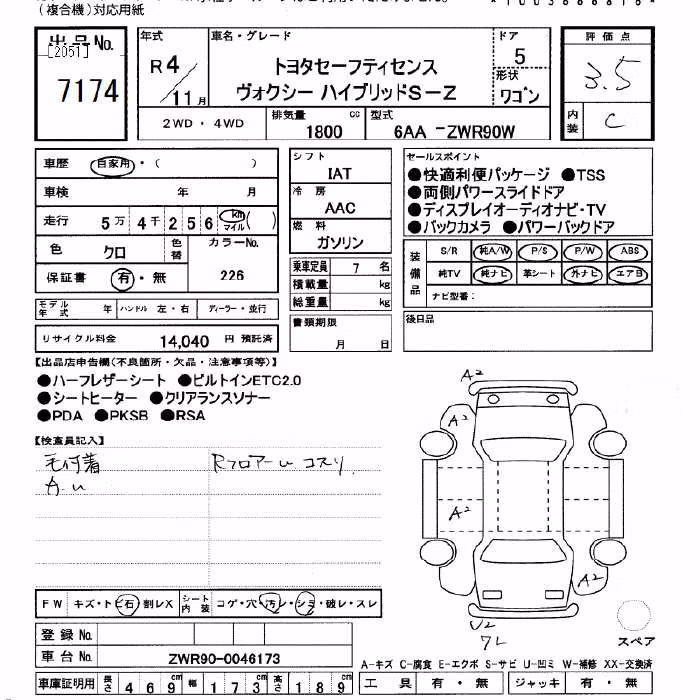 (複合機)対応用紙
出品No.
[2051]
7174
年式
R 4
11 月
車名・グレード
トヨタセーフティセンス
ヴォクシー ハイブリッドS-Z
ドア
5
形状
ワゴン
評価点
3.5
内装
C
2WD・4WD
排気量 1800 cc
型式 6AA -ZWR90W
車歴 自家用・( )
車検 年 月
走行 5万 4千 2 5 6 km マイル ( )
色 クロ
色替
カラーNo.
226
保証書 有・無
モデル年式 年
ハンドル 左・右
ディーラー・並行
リサイクル料金 14,040 円 預託済
シフト
IAT
冷房
AAC
燃料
ガソリン
乗車定員 7 名
積載量 kg
総重量 kg
書類期限
月 日
セールスポイント
●快適利便パッケージ ●TSS
●両側パワースライドドア
●ディスプレイオーディオナビ・TV
●バックカメラ ●パワーバックドア
装備品
S/R 純A/W P/S P/W ABS
純TV 純ナビ 革シート 外ナビ エアB
ナビ型番:
後日品
【出品店申告欄(不良箇所・欠品・注意事項等)】
●ハーフレザーシート ●ビルトインETC2.0
●シートヒーター ●クリアランスソナー
●PDA ●PKSB ●RSA
【検査員記入】
毛付着
Rフロアーu コスリ
A・u
A2
A2
A2
A2
U2
7L
スペア
FW キズ・トビ石 割レX
シート内装 コゲ・穴・汚レ・シミ・破レ・スレ
登録No.
車台No. ZWR90-0046173
車庫証明用 長さ 4 6 9 cm 幅 1 7 3 cm 高さ 1 8 9 cm
A-キズ C-腐食 E-エクボ S-サビ U-凹ミ W-補修 XX-交換済
工具 有・無 ジャッキ 有・無